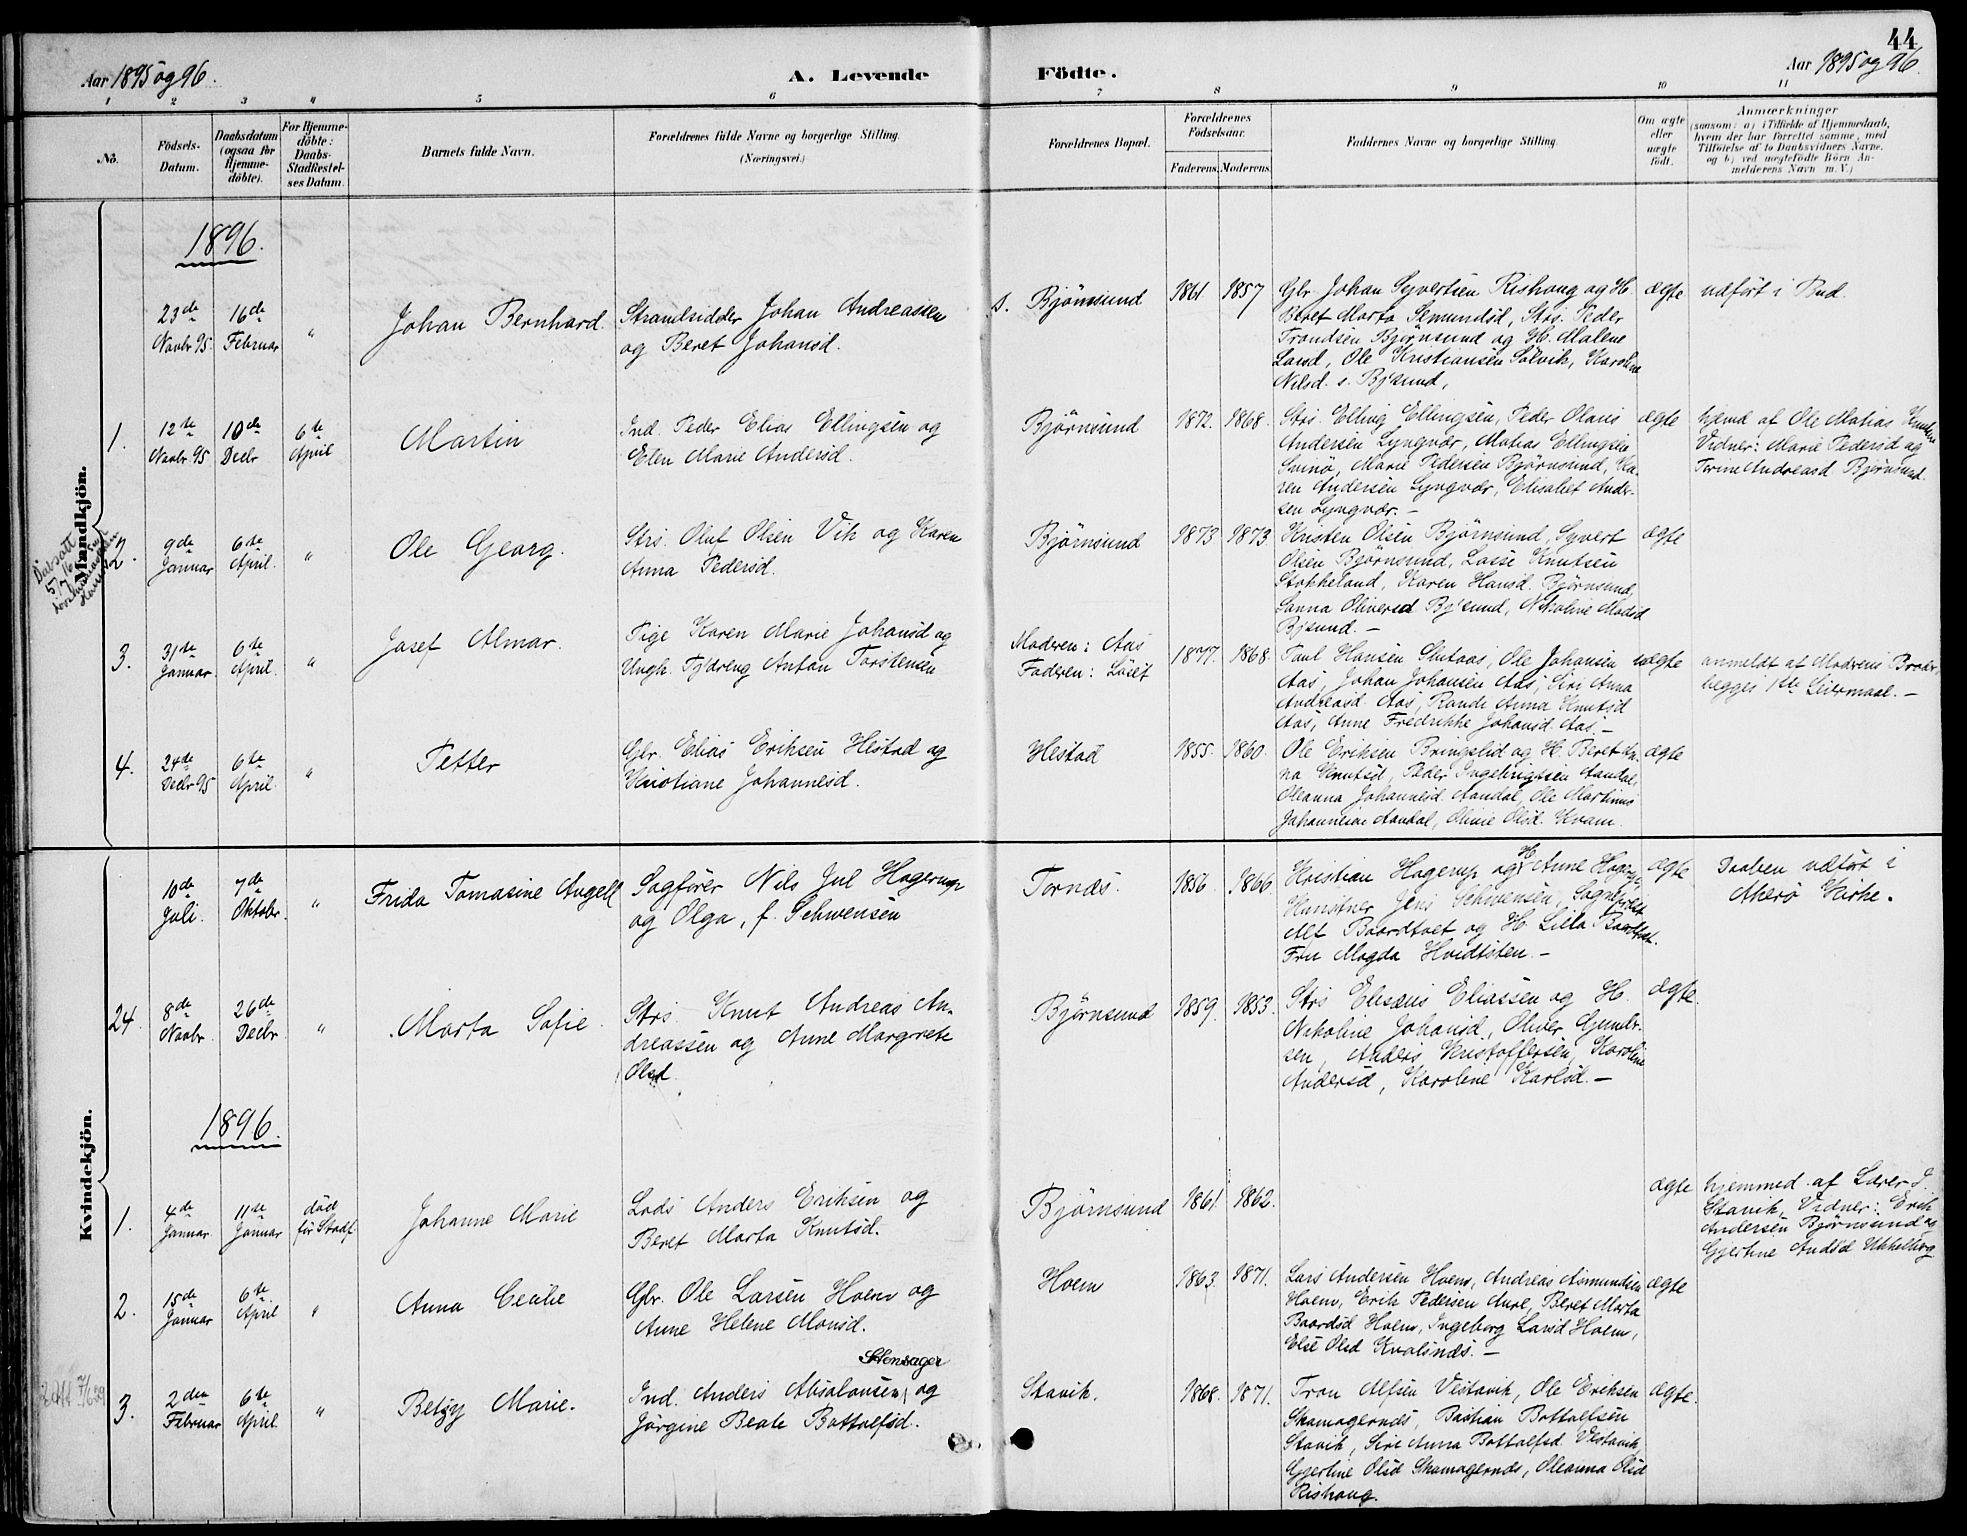 44
Aar 1895 og 96.
A. Levende
Födte.
Aar 1895 og 96.
1 2 3 4 5 6 7 8 9 10 11
No.
Födsels-
Datum.
Daabsdatum
(ogsaa for
Hjemme-
döbte).
For Hjemme-
döbte:
Daabs-
Stadfæstel-
ses Datum.
Barnets fulde Navn.
Forældrenes fulde Navne og borgerlige Stilling.
(Næringsvei.)
Forældrenes Bopæl.
Forældrenes
Födselsaar.
Faderens. Moderens.
Faddernes Navne og borgerlige Stilling.
Om ægte
eller
uægte
födt.
Anmærkninger
(saasom: a) i Tilfælde af Hjemmedaab,
hvem der har forrettet samme, med
Tilföielse af to Daabsvidners Navne,
og b) ved uegtefödte Börn An-
melderens Navn m. V.)
Mandkjön.
1896.
23de
Novbr 95.
16de
Februar
"
Johan Bernhard.
Strandsidder Johan Andreassen
og Beret Johansd.
s. Bjørnsund
1861. 1857
Gbr. Johan Syvertsen Rishaug og H.
Beret Marta Semundsd, Strs. Peder
Trondsen Bjørnsund og H. Malene
Larsd, Ole Kristiansen Solvik, Karoline
Nilsd. s. Bj'sund,
ægte
udført i Bud.
1.
12te
Novbr 95
10de
Decbr
6te
April
Martin
Ind. Peder Elias Ellingsen og
Elen Marie Andersd.
Bjørnsund
1872. 1868.
Strs. Elling Ellingsen, Peder Olaus
Andersen Lyngvær, Matias Ellingsen
Marie Pedersen Bjørnsund, Ka-
ren Andersen Lyngvær, Elisabet Ander-
sen Lyngvær. -
ægte
hjemd af Ole Matias Knutsen
Vidner: Marie Pedersd og
Andreasd Bjørnsund.
2.
9de
Januar
6te
April.
"
Ole Georg.
Strs. Oluf Olsen Vik og Karen
Anna Pedersd.
Bjørnsund
1873 1873.
Kristen Olsen Bjørnsund, Syvert
Olsen Bjørnsund, Lasse Knutsen
Stokkeland, Karen Hansd. Bjørnsund,
Sanna Oliversd Bj'sund, Nikoline Madsd
Bj'sund. -
ægte
3.
31te
Januar
6te
April.
"
Josef Almar.
Pige Karen Marie Johansd og
Ungk. Tj'dreng Anton Torstensen
Moderen: Aas
Faderen: Løset
1877. 1868.
Paul Hansen Slutaas, Ole Johansen
Aas, Johan Johansen Aas, Siri Anna
Andreasd Aas, Randi Anna Knutsd
Aas, Anne Fredrikke Johansd Aas. -
uægte
anmeldt af Moderens Broder,
begges 1ste Leiermaal. -
4.
24de
Decbr 95
6te
April.
"
Petter
Gbr. Elias Eriksen Hestad og
Kristiane Johannesd.
Hestad
1855. 1860.
Ole Eriksen Bringslid og H. Beret An-
na Knutsd, Peder Ingebrigtsen Aandal,
Oleanna Johannesd. Aandal, Ole Martinus
Johannesen Aandal, Oline Olsd. Kvam.
ægte
Kvindekjön.
10de
Juli.
7de
Oktobr.
"
Frida Tomasine Angell
Sagfører Nils Jul Hagerup
og Olga, f. Schwensen
Tornæs.
1856. 1866.
Kristian Hagerup og H Anne Hagerup,
Kunstner Jens Schwensen, Sogneprest
Alf Baardtvet og H. Lilla Baardtvet.
Fru Magda Hvidtsten. -
ægte
Daaben udført i
Akerø Kirke.
24.
8de
Novbr.
26de
Decbr.
"
Marta Sofie
Strs. Knut Andreas An-
dreassen og Anne Margrete
Olsd.
Bjørnsund
1859. 1853.
Strs Elisæus Eliassen og H.
Nikoline Johansd, Oliver Gunder-
sen, Anders Kristoffersen, Karoline
Andersd, Karoline Karlsd. -
ægte.
1896.
1.
4de
Januar.
11te
Januar
død
før Stadf.
Johanne Marie
Lods Anders Eriksen og
Beret Marta Knutsd.
Bjørnsund
1861. 1862.
ægte
hjemmed. af Lærer
Stavik. Vidner: Erik
Andersen Bjørnsund og
Gjertine
2.
15de
Januar
6te
April
"
Anna Cecilie
Gbr. Ole Larsen Hoem og
Anne Helene Monsd.
Hoem
1863. 1871.
Lars Andersen Hoem, Andreas Asmundsen
Hoem, Erik Pedersen Aure, Beret Marta
Baardsd Hoem, Ingeborg Larsd Hoem,
Else Olsd Kvalsnæs. -
ægte
3.
2den
Februar
6te
April
"
Betzy Marie.
Stensager
Ind. Anders Absalonsen og
Jørgine Beate Bottolfsd.
Stavik.
1868. 1871.
Tron Alfsen Vestavik, Ole Eriksen
Skamagernæs, Bastian Bottolfsen
Stavik, Siri Anna Bottolfsd Vestavik,
Gjertine Olsd Skamagernæs, Oleanna Olsd
Rishaug.
ægte.